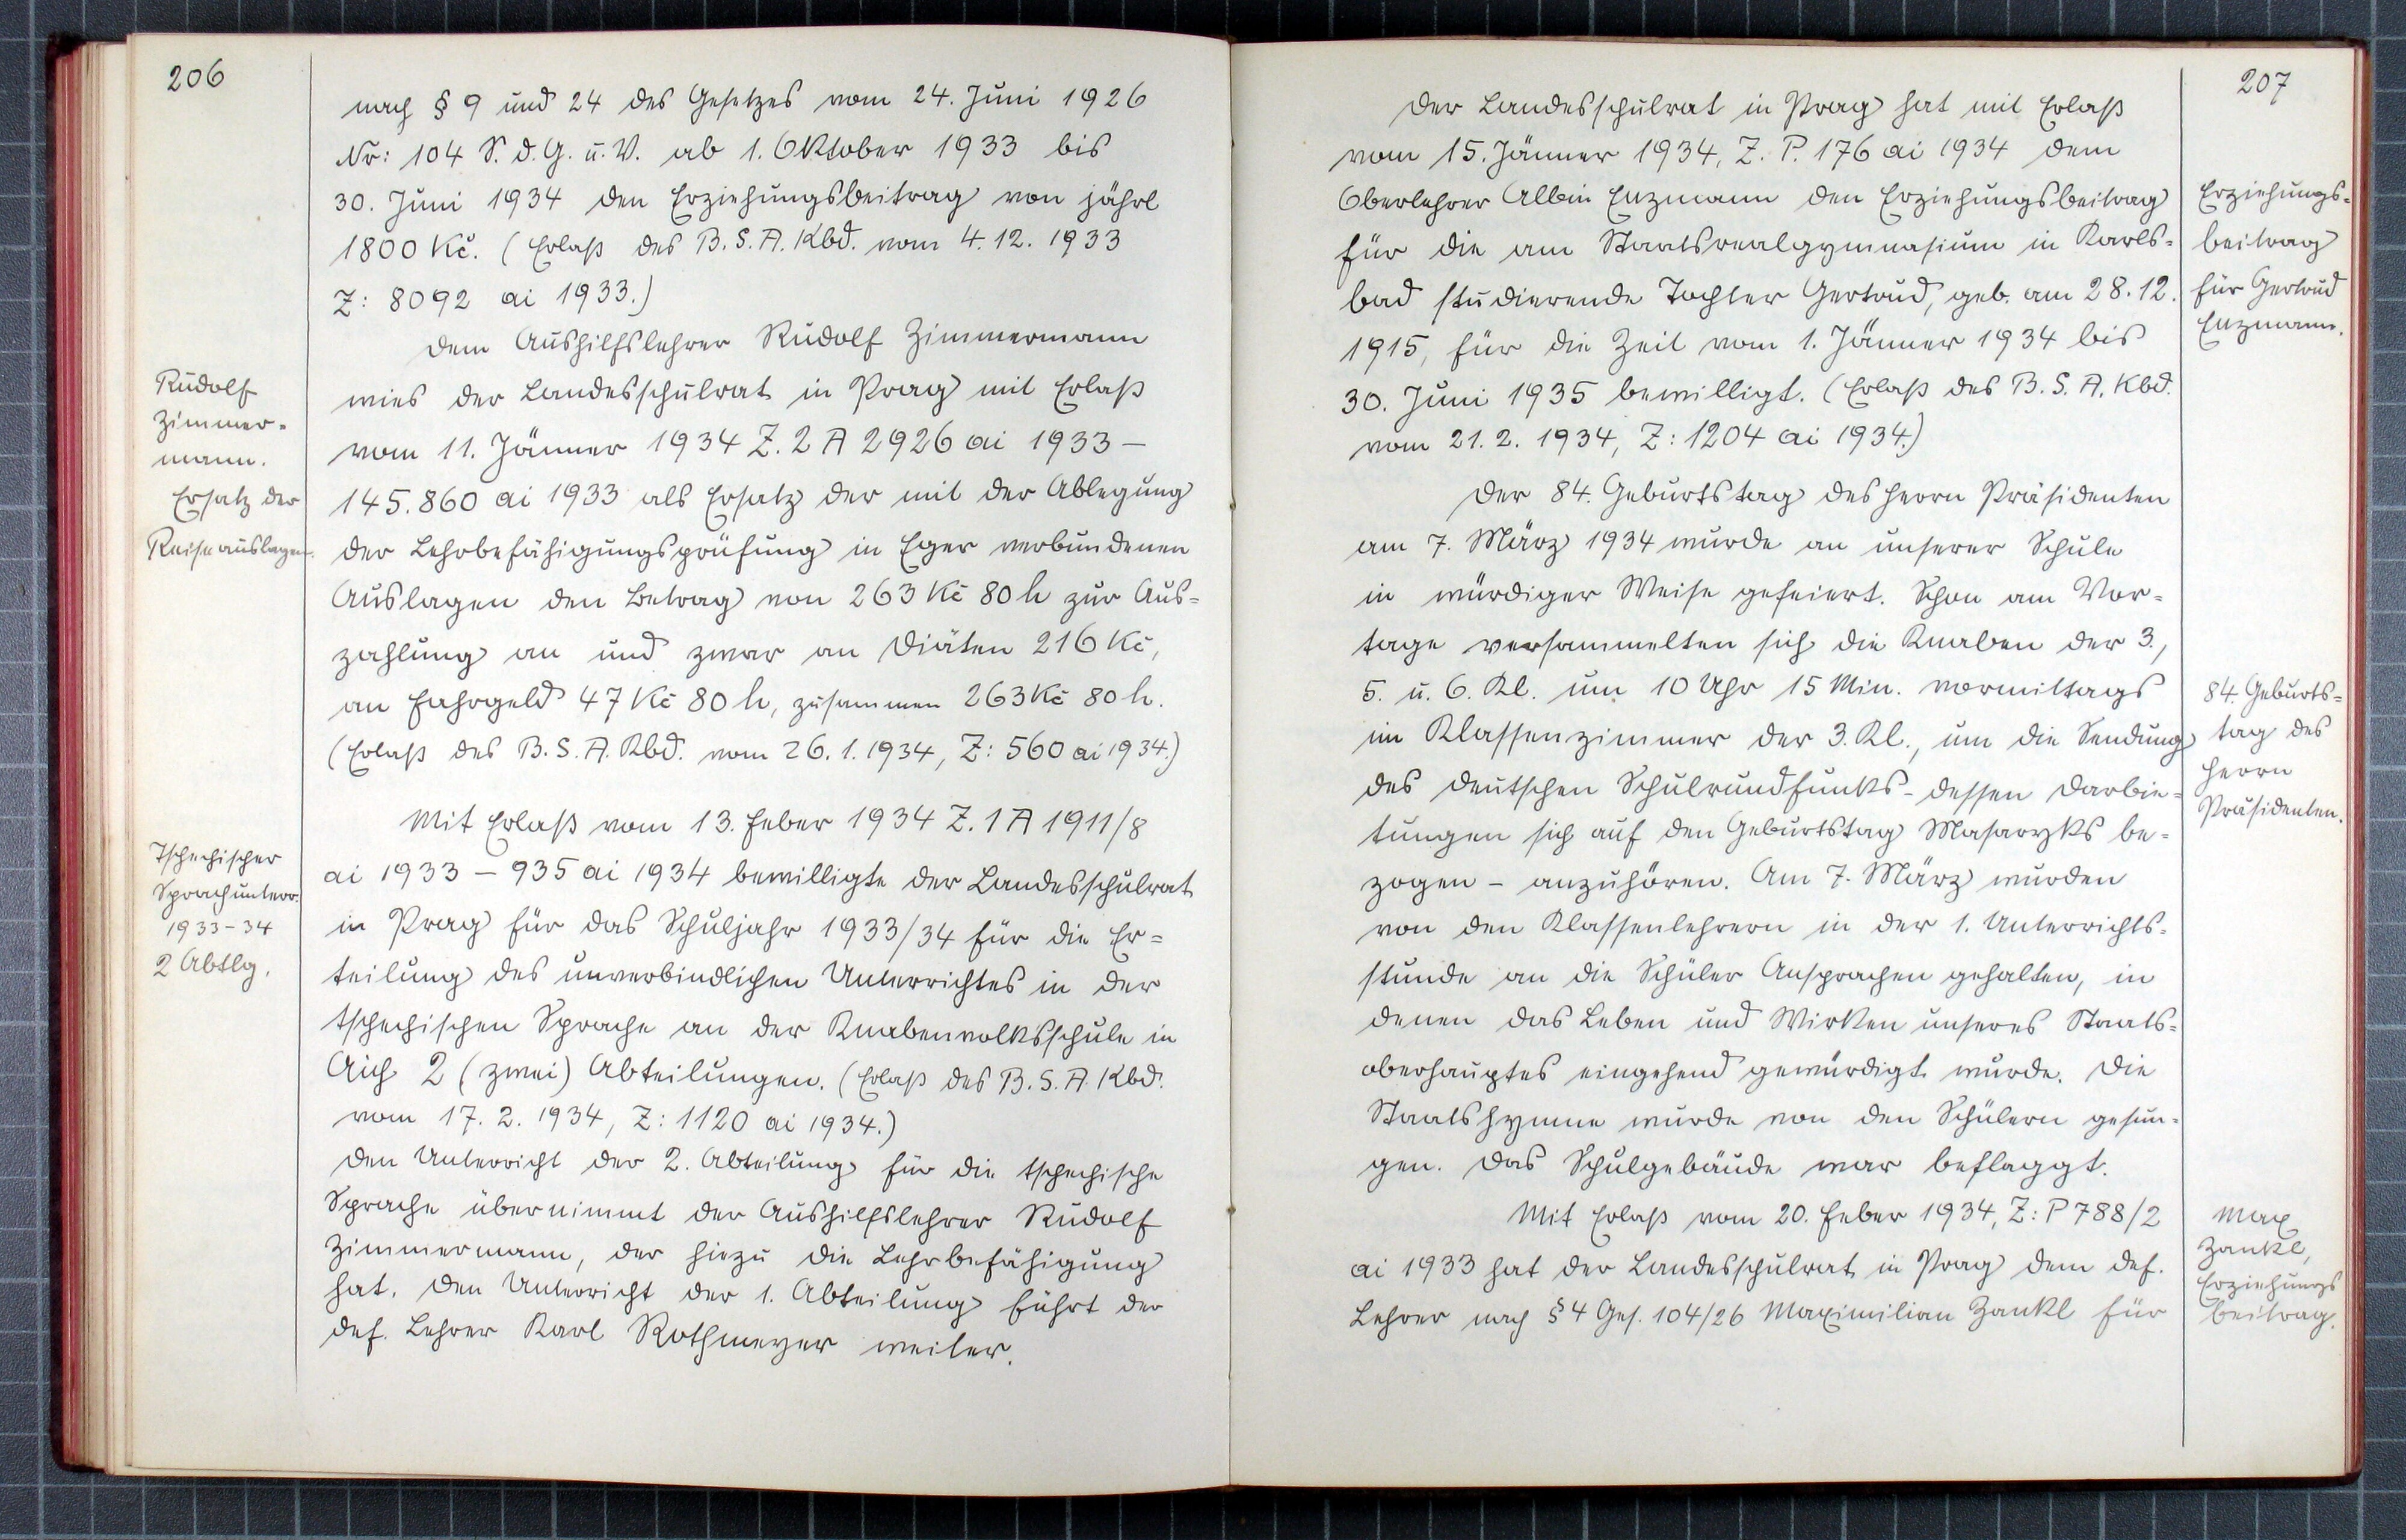 206
nach § 9 und 24 des Gesetzes vom 24. Juni 1926
Nr: 104 S. d. G. u. V. ab 1. Oktober 1933 bis
30. Juni 1934 den Erziehungsbeitrag von jährl
1800 Kč. (Erlaß des B. S. A. Kbd. vom 4. 12. 1933
Z: 8092 ai 1933.)
Dem Aushilfslehrer Rudolf Zimmermann
wies der Landesschulrat in Prag mit Erlaß
vom 11. Jänner 1934 Z. 2 A 2926 ai 1933 –
145.860 ai 1933 als Ersatz der mit der Ablegung
der Lehrbefähigungsprüfung in Eger verbundenen
Auslagen den Betrag von 263 Kč 80 h zur Aus=
zahlung an und zwar an Diäten 216 Kč,
an Fahrgeld 47 Kč 80 h, zusammen 263 Kč 80 h.
(Erlaß des B. S. A. Kbd. vom 26. 1. 1934, Z: 560 ai 1934.)
Mit Erlaß vom 13. Feber 1934 Z. 1 A 1911/8
ai 1933 – 935 ai 1934 bewilligte der Landesschulrat
in Prag für das Schuljahr 1933/34 für die Er=
teilung des unverbindlichen Unterrichtes in der
tschechischen Sprache an der Knabenvolksschule in
Aich 2 (zwei) Abteilungen. (Erlaß des B. S. A. Kbd.
vom 17. 2. 1934, Z: 1120 ai 1934.)
Den Unterricht der 2. Abteilung für die tschechische
Sprache übernimmt der Aushilfslehrer Rudolf
Zimmermann, der hiezu die Lehrbefähigung
hat. Den Unterricht der 1. Abteilung führt der
def. Lehrer Karl Rothmeyer weiter.
Rudolf
Zimmer=
mann.
Ersatz der
Reiseauslagen.
Tschechischer
Sprachunterr.
1933–34
2 Abtlg.
207
Der Landesschulrat in Prag hat mit Erlaß
vom 15. Jänner 1934, Z. P. 176 ai 1934 dem
Oberlehrer Albin Enzmann den Erziehungsbeitrag
für die am Staatsrealgymnasium in Karls=
bad studierende Tochter Gertrud, geb. am 28. 12.
1915, für die Zeit vom 1. Jänner 1934 bis
30. Juni 1935 bewilligt. (Erlaß des B. S. A. Kbd.
vom 21. 2. 1934, Z: 1204 ai 1934.)
Der 84. Geburtstag des Herrn Präsidenten
am 7. März 1934 wurde an unserer Schule
in würdiger Weise gefeiert. Schon am Vor=
tage versammelten sich die Knaben der 3.,
5. u. 6. Kl. um 10 Uhr 15 Min. vormittags
im Klassenzimmer der 3. Kl., um die Sendung
des deutschen Schulrundfunks – dessen Darbie=
tungen sich auf den Geburtstag Masaryks be=
zogen – anzuhören. Am 7. März wurden
von den Klassenlehrern in der 1. Unterrichts=
stunde an die Schüler Ansprachen gehalten, in
denen das Leben und Wirken unseres Staats=
oberhauptes eingehend gewürdigt wurde. Die
Staatshymne wurde von den Schülern gesun=
gen. Das Schulgebäude war beflaggt.
Mit Erlaß vom 20. Feber 1934, Z: P 788/2
ai 1933 hat der Landesschulrat in Prag dem def.
Lehrer nach § 4 Ges. 104/26 Maximilian Zankl für
Erziehungs=
beitrag
für Gertrud
Enzmann.
84. Geburts=
tag des
Herrn
Präsidenten.
Max
Zankl,
Erziehungs
beitrag.